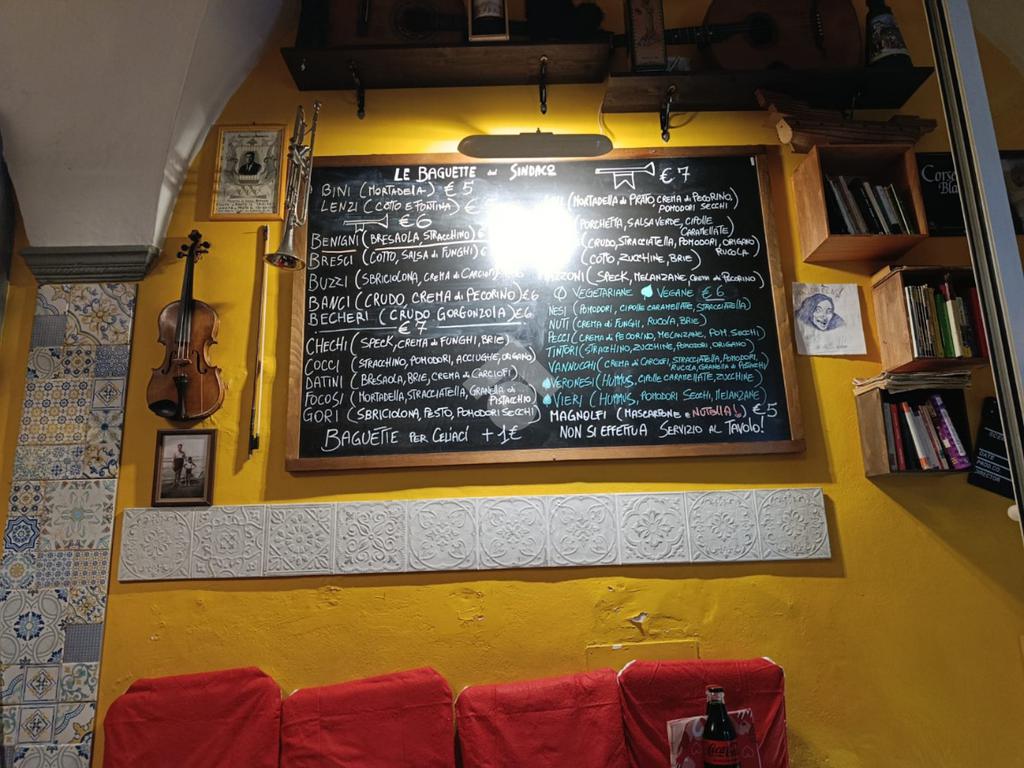 LE BAGUETTE del SINDACO
BINI (MORTADELLA) € 5
LENZI (COTTO E FONTINA) €
€ 6
BENIGNI (BRESAOLA, STRACCHINO)
BRESCI (COTTO, SALSA di FUNGHI)
BUZZI (SBRICIOLONA, CREMA di CARCIOFI)
BANCI (CRUDO, CREMA di PECORINO) €6
BECHERI (CRUDO GORGONZOLA) €6
€ 7
CHECHI (SPECK, CREMA di FUNGHI, BRIE)
COCCI (STRACCHINO, POMODORI, ACCIUGHE, ORIGANO)
DATINI (BRESAOLA, BRIE, CREMA di CARCIOFI)
FOCOSI (MORTADELLA, STRACCIATELLA, GRANELLA di PISTACCHIO)
GORI (SBRICIOLONA, PESTO, POMODORI SECCHI)
BAGUETTE PER CELIACI + 1€
€ 7
(MORTADELLA di PRATO, CREMA di PECORINO,
POMODORI SECCHI
PORCHETTA, SALSA VERDE, CIPOLLE
CARAMELLATE
(CRUDO, STRACCIATELLA, POMODORI, ORIGANO
RUCOLA)
(COTTO, ZUCCHINE, BRIE)
(SPECK, MELANZANE, CREMA di PECORINO)
VEGETARIANE VEGANE € 6
NESI (POMODORI, CIPOLLE CARAMELLATE, STRACCIATELLA)
NUTI (CREMA di FUNGHI, RUCOLA, BRIE)
PECCI (CREMA di PECORINO, MELANZANE, POM. SECCHI)
TINTORI (STRACCHINO, ZUCCHINE, POMODORI, ORIGANO)
VANNUCCHI (CREMA di CARCIOFI, STRACCIATELLA, POMODORI,
RUCOLA, GRANELLA di PISTACCHI)
VERONESI (HUMMUS, CIPOLLE CARAMELLATE, ZUCCHINE)
VIERI (HUMMUS, POMODORI SECCHI, MELANZANE)
MAGNOLFI (MASCARPONE e NUTELLA!) €5
NON SI EFFETTUA SERVIZIO AL TAVOLO!
DATE
PROD.CO
DIRECTOR
Coca-Cola